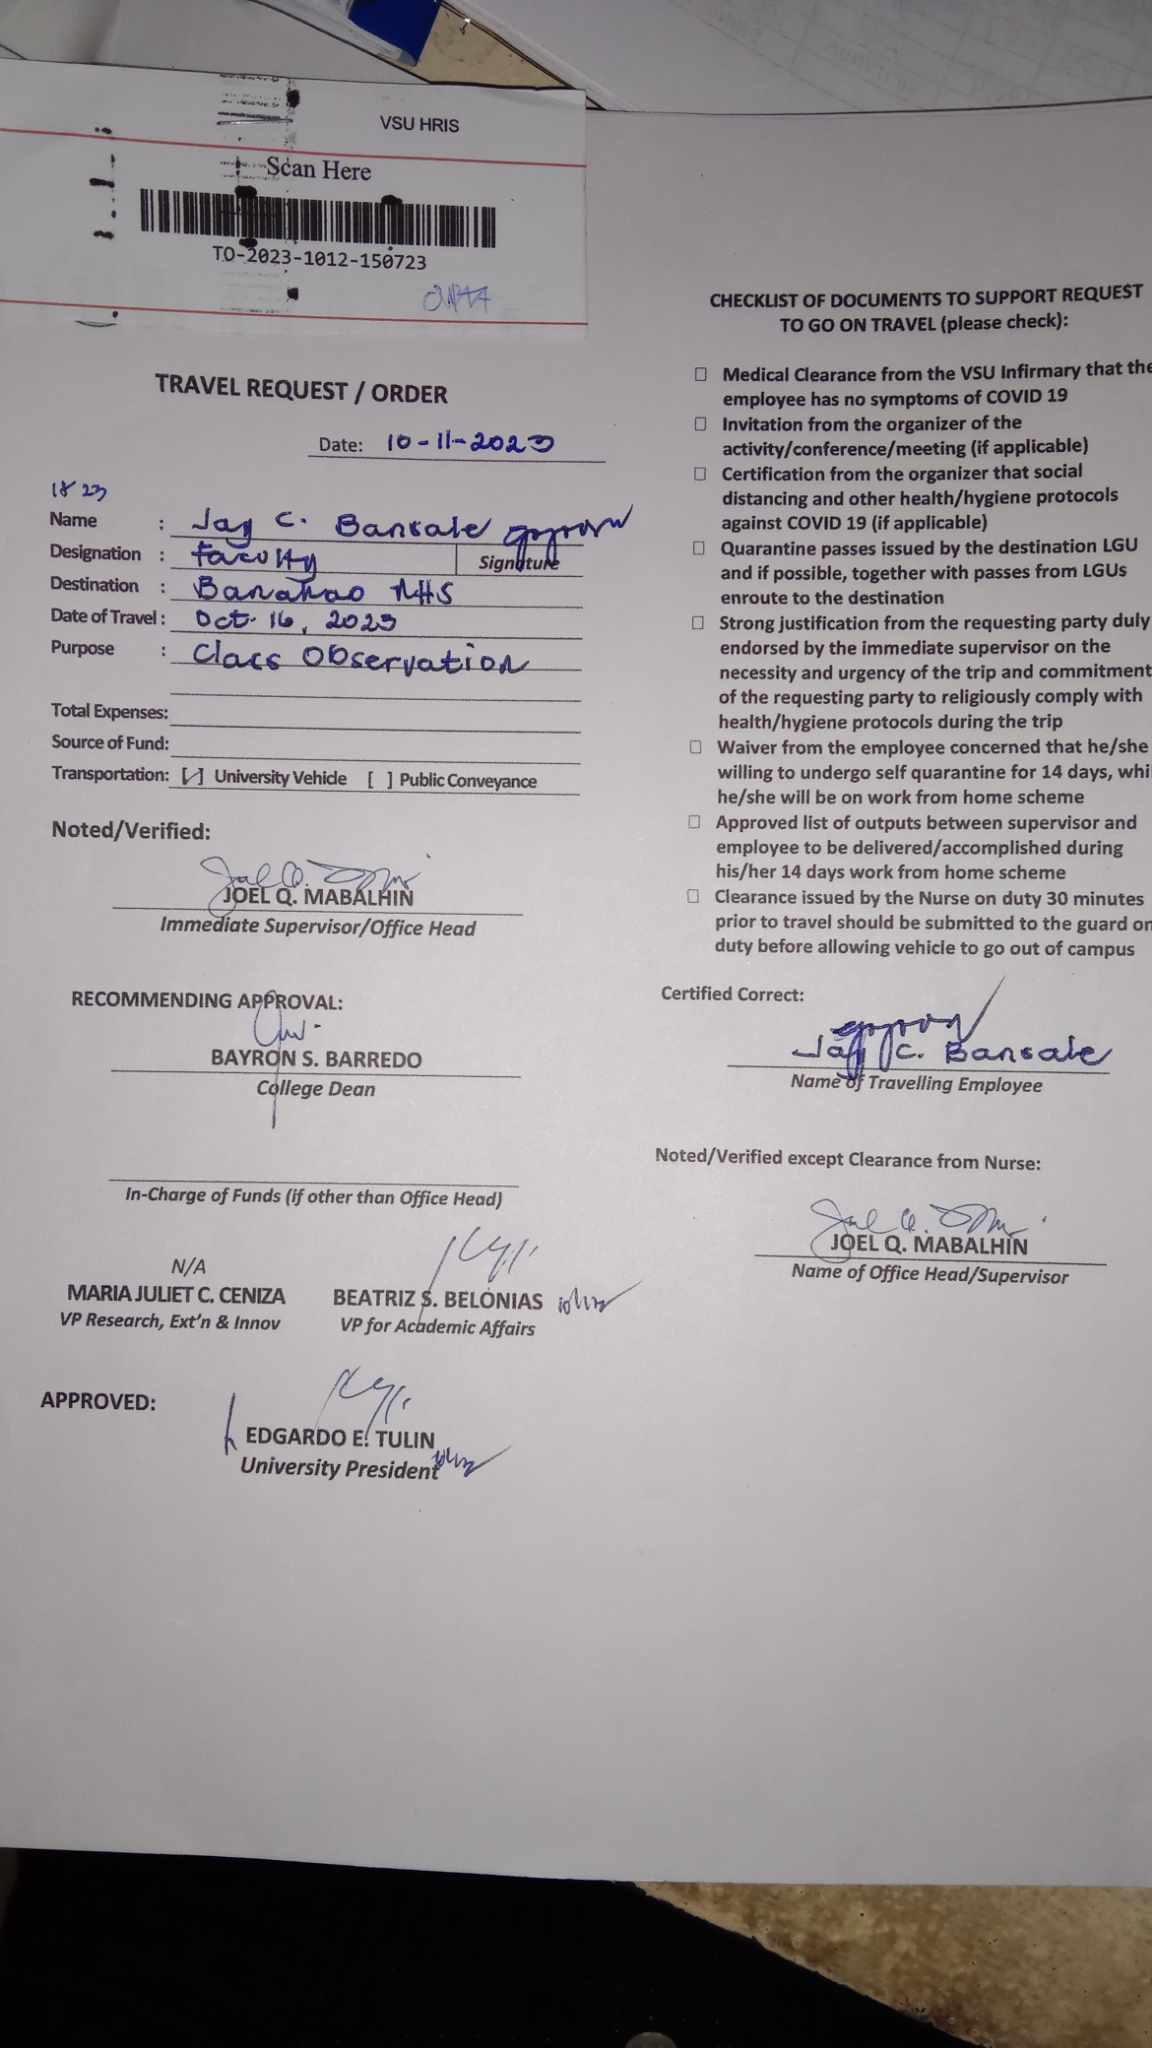 VSU HRIS
Scan Here
TO-2023-1012-150723
TRAVEL REQUEST / ORDER
Date: 10-11-2023
18 23
Name : Jay C. Bansale
Signature
Designation : Faculty
Destination : Banahao NHS
Date of Travel : Oct. 16, 2023
Purpose : Class Observation
Total Expenses:
Source of Fund:
Transportation: [✓] University Vehicle [ ] Public Conveyance
Noted/Verified:
JOEL Q. MABALHIN
Immediate Supervisor/Office Head
RECOMMENDING APPROVAL:
BAYRON S. BARREDO
College Dean
In-Charge of Funds (if other than Office Head)
N/A
MARIA JULIET C. CENIZA
VP Research, Ext'n & Innov
BEATRIZ S. BELONIAS
VP for Academic Affairs
APPROVED:
EDGARDO E. TULIN
University President
CHECKLIST OF DOCUMENTS TO SUPPORT REQUEST
TO GO ON TRAVEL (please check):
☐ Medical Clearance from the VSU Infirmary that the
employee has no symptoms of COVID 19
☐ Invitation from the organizer of the
activity/conference/meeting (if applicable)
☐ Certification from the organizer that social
distancing and other health/hygiene protocols
against COVID 19 (if applicable)
☐ Quarantine passes issued by the destination LGU
and if possible, together with passes from LGUs
enroute to the destination
☐ Strong justification from the requesting party duly
endorsed by the immediate supervisor on the
necessity and urgency of the trip and commitment
of the requesting party to religiously comply with
health/hygiene protocols during the trip
☐ Waiver from the employee concerned that he/she
willing to undergo self quarantine for 14 days, whi
he/she will be on work from home scheme
☐ Approved list of outputs between supervisor and
employee to be delivered/accomplished during
his/her 14 days work from home scheme
☐ Clearance issued by the Nurse on duty 30 minutes
prior to travel should be submitted to the guard on
duty before allowing vehicle to go out of campus
Certified Correct:
Jay C. Bansale
Name of Travelling Employee
Noted/Verified except Clearance from Nurse:
JOEL Q. MABALHIN
Name of Office Head/Supervisor